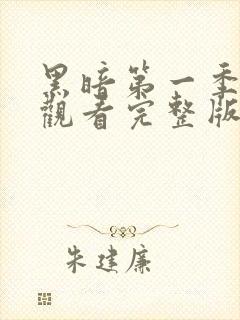 黑暗第一季
觀看完整版
朱建廉